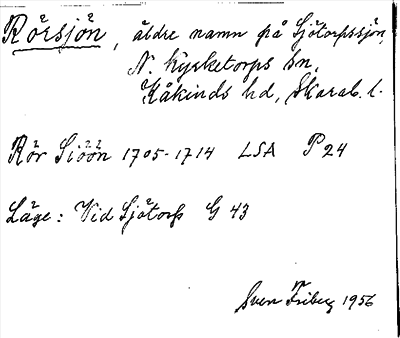 Rörsjön, äldre namn på Sjötorpssjön,
N. Kyrketorps sn,
Kåkinds hd, Skarab. l.
Rör Siöön 1705-1714 LSA P 24
Läge: Vid Sjötorp G 43
Sven Friberg 1956